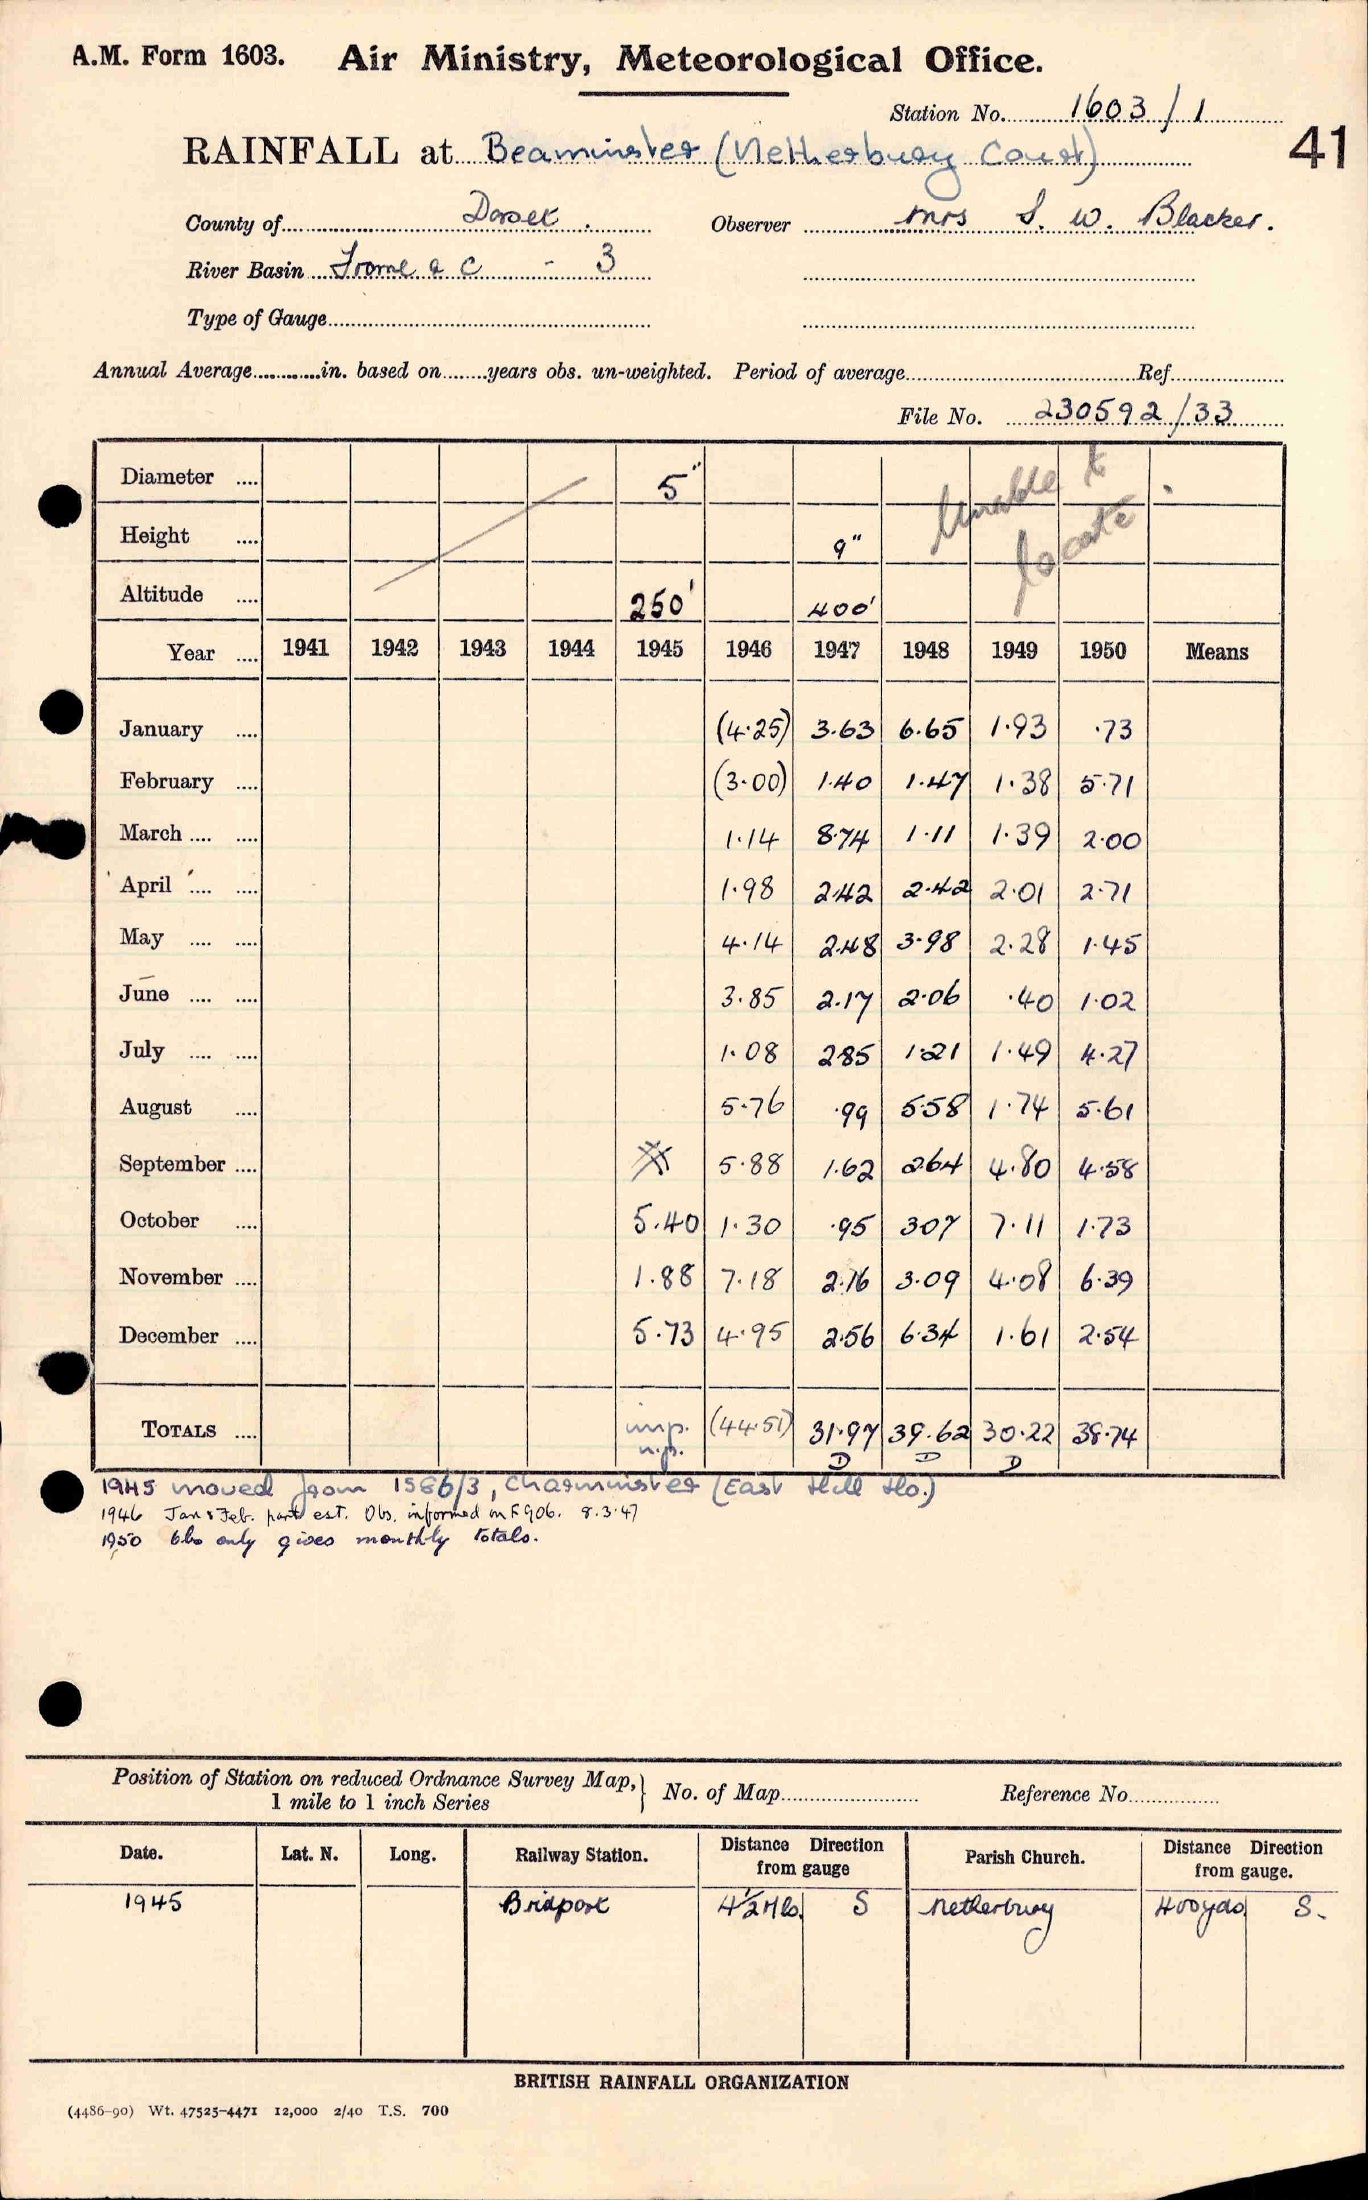 A.M. Form 1603. Air Ministry, Meteorological Office.
Station No. 1603/1
RAINFALL at Beaminster (Netherbury Court) 41
County of Dorset. Observer Mrs S. W. Blacker.
River Basin Frome &c - 3
Type of Gauge
Annual Average in. based on years obs. un-weighted. Period of average Ref
File No. 230592/33
Diameter 5" Unable to
Height 9" locate
Altitude 250' 400'
Year 1941 1942 1943 1944 1945 1946 1947 1948 1949 1950 Means
January (4.25) 3.63 6.65 1.93 .73
February (3.00) 1.40 1.47 1.38 5.71
March 1.14 8.74 1.11 1.39 2.00
April 1.98 2.42 2.42 2.01 2.71
May 4.14 2.48 3.98 2.28 1.45
June 3.85 2.17 2.06 .40 1.02
July 1.08 2.85 1.21 1.49 4.27
August 5.76 .99 5.58 1.74 5.61
September 5.88 1.62 2.64 4.80 4.58
October 5.40 1.30 .95 3.07 7.11 1.73
November 1.88 7.18 2.16 3.09 4.08 6.39
December 5.73 4.95 2.56 6.34 1.61 2.54
TOTALS imp. (44.51) 31.97 39.62 30.22 38.74
n.p. D D D
1945 moved from 1586/3, Charminster (East Hill Ho.)
1946 Jan & Feb. part est. Obs. informed on F906. 8.3.47
1950 Obs only gives monthly totals.
Position of Station on reduced Ordnance Survey Map, No. of Map Reference No
1 mile to 1 inch Series
Date. Lat. N. Long. Railway Station. Distance Direction from gauge Parish Church. Distance Direction from gauge.
1945 Bridport 4½ Mls. S Netherbury 400yds S.
BRITISH RAINFALL ORGANIZATION
(4486-90) Wt. 47525-4471 12,000 2/40 T.S. 700